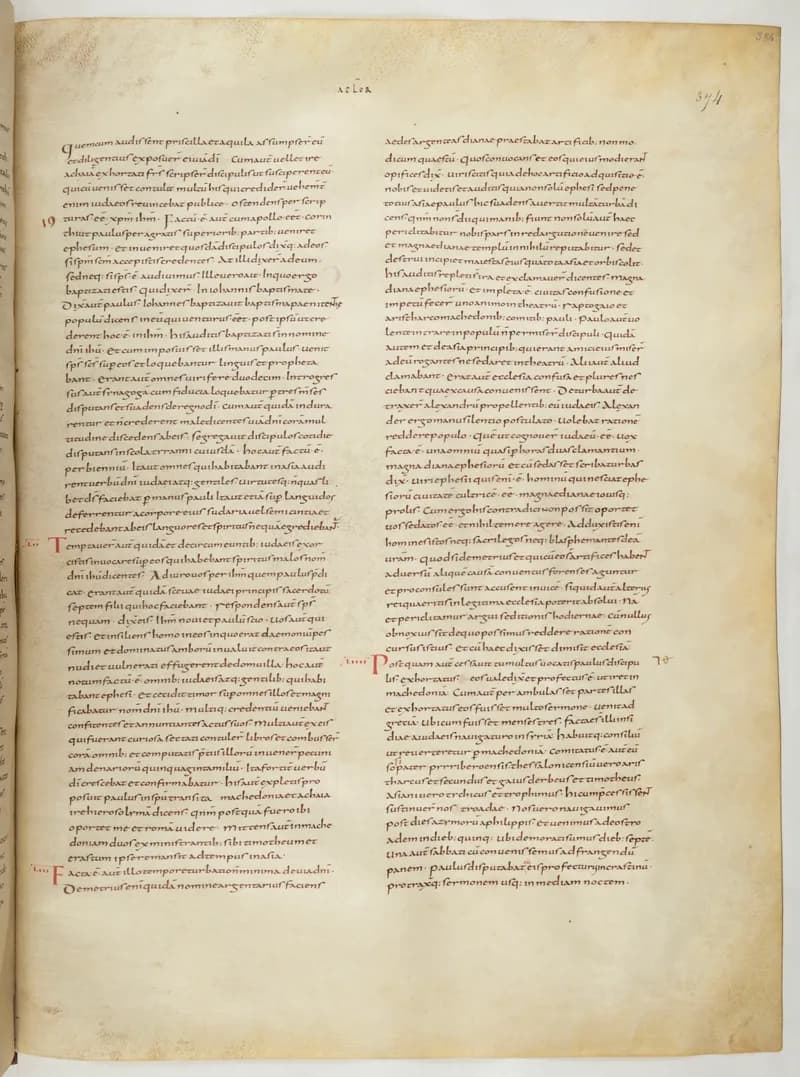 ACT APL
386
374
Quemcum audissent priscilla et aquila assumpser eū
et diligentius exposuer ei uiā dī · Cum aut uellet ire
achaiā exhortati frs scripser discipulis ut susciperent eū ·
qui cū uenisset contulit multū his qui credider uehemt
enim iudaeos reuincebat publice · ostendens per scrip
19 turas eē xpm ihm · Factū ē aut cum apollo eēt corin
thi ut paulus peragratis superiorib: partib: ueniret
ephesum · et inueniret quosdā discipulos dixq: ad eos ·
si spm scm accepistis credentes · At illi dixer ad eum ·
sed neq: si sps ē audiuimus · Ille uero ait · In quo ergo
baptizati estis · Qui dixer · In iohannis baptismate ·
Dix aut paulus · Iohannes baptizauit baptisma paenitentiae
populū dicens in eū qui uenturus eēt · post ipsū ut cre
derent hoc ē in ihm · his auditis baptizati s̄ in nomine
dni ihu · Et cum imposuisset illis manus paulus · uenit
sps scs sup eos et loquebantur linguis et propheta
bant · erant aut omnes uiri fere duodecim · Introgres
sus aut synagogā cum fiducia loquebatur p tres mses
disputans et suadens de regno dī · Cum aut quidā indura
rentur et ñ crederent maledicentes uiā dnī corā mul
titudine discedens ab eis · segregauit discipulos cotidie
disputans in scola tyranni cuiusdā · hoc aut factū ē ·
per biennium · Ita ut omnes qui habitabant in asia audi
rent uerbū dnī iudaei atq: gentiles · uirtutesq: ñ quas li
bet ds faciebat p manus pauli · Ita ut etiā sup languidos
deferrentur a corpore eius sudaria uel semicintia et
recedebant ab eis languores et spiritus nequā egrediebant ·
Temptauer aut quidā et de circumeuntib: iudaeis exor
cistis inuocare sup eos qui habebant spiritus malos nom
dnī ihū dicentes · Adiuro uos per ihm quem paulus pdi
cat · erant aut quidā sceuae iudaei principis sacerdotū
septem filii qui hoc faciebant · respondens aut sps
nequam · dix eis · Ihm noui et paulū scio · Uos aut qui
estis · et insiliens homo in eos in quo erat daemoniū pes
simum et dominatus amborū inualuit contra eos ita ut
nudi et uulnerati effugerent de domu illa · hoc aut
notum factū ē · omnib: iudaeis atq: gentilib: qui habi
tabant ephesi · Et cecidit timor sup omnes illos et magni
ficabatur nom dnī ihū · Multiq: credentiū ueniebant
confitentes et annuntiantes actus suos · Multi aut ex eis
qui fuerant curiosa sectati contuler libros et combusser
corā omnib: et computatis ptiis illorū inuener pecuni
am denariorū quinquaginta miliū · Ita fortit uerbū
dī crescebat et confirmabatur · his aut expletis pro
posuit paulus in spū transita machedonia et achaia
ire hierosolymā dicens · qnm postquā fuero ibi
oportet me et romā uidere · Mittens aut in mache
doniam duos ex ministrantib: sibi timotheum et
erastum ipse remansit ad tempus in asia ·
Facta ē aut illo tempore turbatio ñ minima de uia dnī ·
Demetrius enī quidā nomine argentarius faciens
aedes argenteas dianae praestabat artificib: non mo
dicum quaestū · Quos conuocans et eos qui eiusmodi erant
opifices dix · uiri scitis quia de hoc artificio adquisitio ē ·
nobis et uidetis et auditis quia non solū ephesi sed pene
totius asiae paulus hic suadens auertit multā turbā di
cens qnm non s̄ dii qui manib: fiunt non solū aut haec
periclitabitur nobis pars in redargutionē uenire sed
et magnae dianae templū in nihilū reputabitur · sed et
destrui incipiet maiestas eius quā tota asia et orbis colit ·
his auditis repleti s̄ ira et exclamauer dicentes magna
diana ephesiorū · et impleta ē ciuitas confusione et
impetū fecer uno animo in theatrū · rapto gaio et
aristharco machedonib: comitib: pauli · Paulo aut uo
lente intrare in populū ñ permiser discipuli · Quidā
autem et de asiae principib: qui erant amici eius miser
ad eū rogantes ne se daret in theatrū · Alii aut aliud
clamabant · Erat aut ecclesia confusa et plures nes
ciebant qua ex causa conuenissent · De turba aut de
traxer alexandrū propellentib: eū iudaeis · Alexan
der ergo manu silentio postulato · Uolebat rationē
reddere populo · Quē ut cognouer iudaeū eē · uox
facta ē · una omniū quasi p horas duas clamantium ·
magna diana ephesiorū · Et cū sedasset scriba turbas
dix · Uiri ephesii quis enī ē · hominū qui nesciat ephe
siorū ciuitatē cultricē · eē · magnae dianae iouisq:
prolis · Cum ergo his contradici non possit oportet
uos sedatos eē · et nihil temere agere · Adduxistis enī
homines istos neq: sacrilegos neq: blasphemantes deā
uram · quod si demetrius et qui cū eo s̄ artifices habent
aduersū aliquē causā conuentus forenses aguntur
et proconsules sunt accusent inuicē · si quid aut alterius
rei quaeritis in legitima ecclesia poterit absolui · Nā
et periclitamur argui seditionis hodiernae · cū nullus
obnoxius sit de quo possimus reddere rationē con
cursus istius · et cū haec dixisset dimisit ecclesiā ·
20 Postquam aut cessauit tumultus uocatis paulus discipu
lis · et exhortatus eos · ualedix et profectus ē · ut iret in
machedoniā · Cum aut perambulasset partes illas
et exhortatus eos fuisset multo sermone · uenit ad
greciā · Ubi cum fuisset menses tres · factae s̄ illi insi
diae a iudaeis nauigaturo in syriā · habuitq: consiliū
ut reuerteretur p machedoniā · Comitatus ē aut eū
sopater pyrri beroensis thessalonicensiū uero aris
tharcus et secundus et gaius derbeus et timotheus ·
Asiani uero trichicus et trophimus · hi cum pcessissent
sustinuer nos troadae · Nos uero nauigauimus
post dies azymorū a philippis et uenimus ad eos tro
adem in dieb: quinq: ubi demorati sumus dieb: septē ·
Una aut sabbati cū conuenissemus ad frangendū
panem · Paulus disputabat eis profecturus in crastinū ·
protraxitq: sermonem usq: in mediam noctem ·